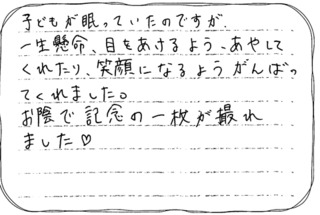 子どもが眠っていたのですが、
一生懸命、目をあけるよう、あやして
くれたり、笑顔になるようがんばっ
てくれました。
お陰で記念の一枚が撮れ
ました♡